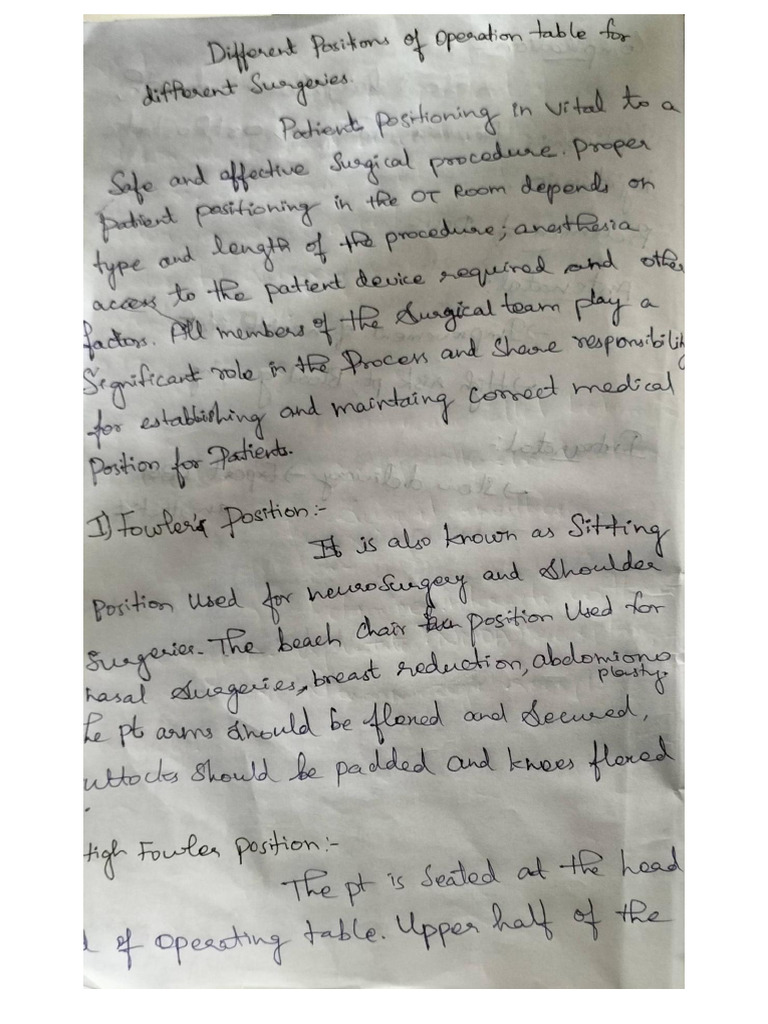 Different Positions of operation table for
different Surgeries.
Patients positioning in vital to a
Safe and affective Surgical procedure. proper
patient positioning in the OT Room depends on
type and length of the procedure; anesthesia
access to the patient device required and other
factors. All members of the Surgical team play a
Significant role in the Process and share responsibility
for establishing and maintaing correct medical
Postion for Patients.
I) Fowler's Position:-
It is also known as Sitting
Position used for neurosurgery and shoulder
Surgeries. The beach chair position Used for
nasal surgeries, breast reduction, abdomiono
plasty.
he pt arms should be flexed and secured,
uttocks should be padded and knees flexed
High Fowler position:-
The pt is seated at the head
of operating table. Upper half of the